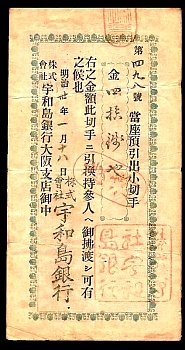 第四九八號
當座預引出小切手
金四拾
右之金額此切手ニ引換持參人ヘ御拂渡シ可有
之候也
明治廿年一月十八日
株式會社宇和島銀行
株式會社宇和島銀行大阪支店御中